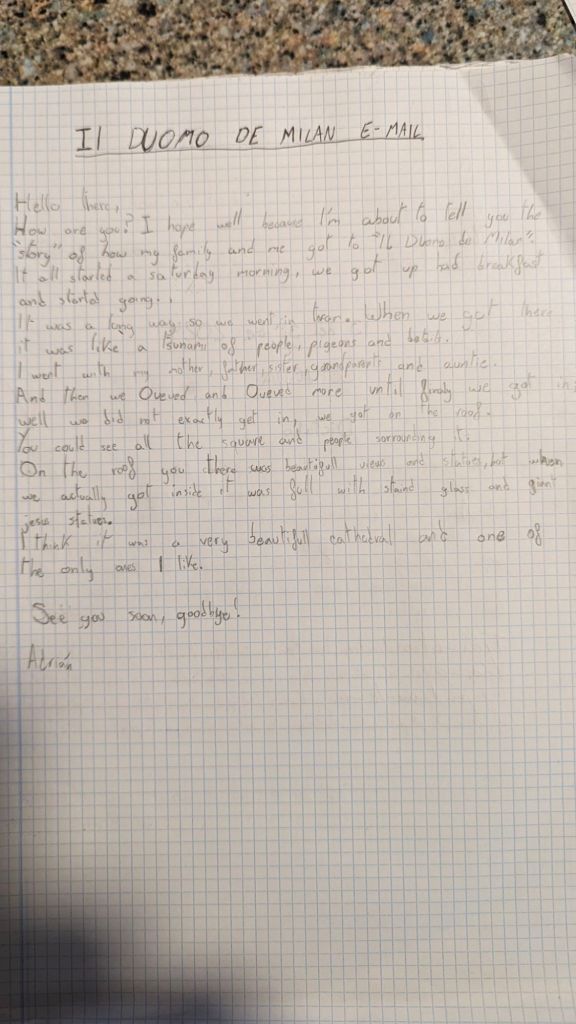 Il DUOMO DE MILAN E-MAIL
Hello there,
How are you? I hope well because I'm about to tell you the
"story" of how my family and me got to "Il Duomo de Milan".
It all started a saturday morning, we got up had breakfast
and started going.
It was a long way so we went in tran. When we got there
it was like a tsunami of people, pigeons and
I went with my mother, father, sister, grandparents and auntie.
And then we Queued and Queued more until finaly we got in,
well we did not exactly get in, we got on the roof.
You could see all the square and people sorrounding it.
On the roof you there was beautifull views and statues, but when
we actually got inside it was full with staind glass and giant
jesus statues.
I think it was a very beautifull cathedral and one of
the only ones I like.
See you soon, goodbye!
Adrián